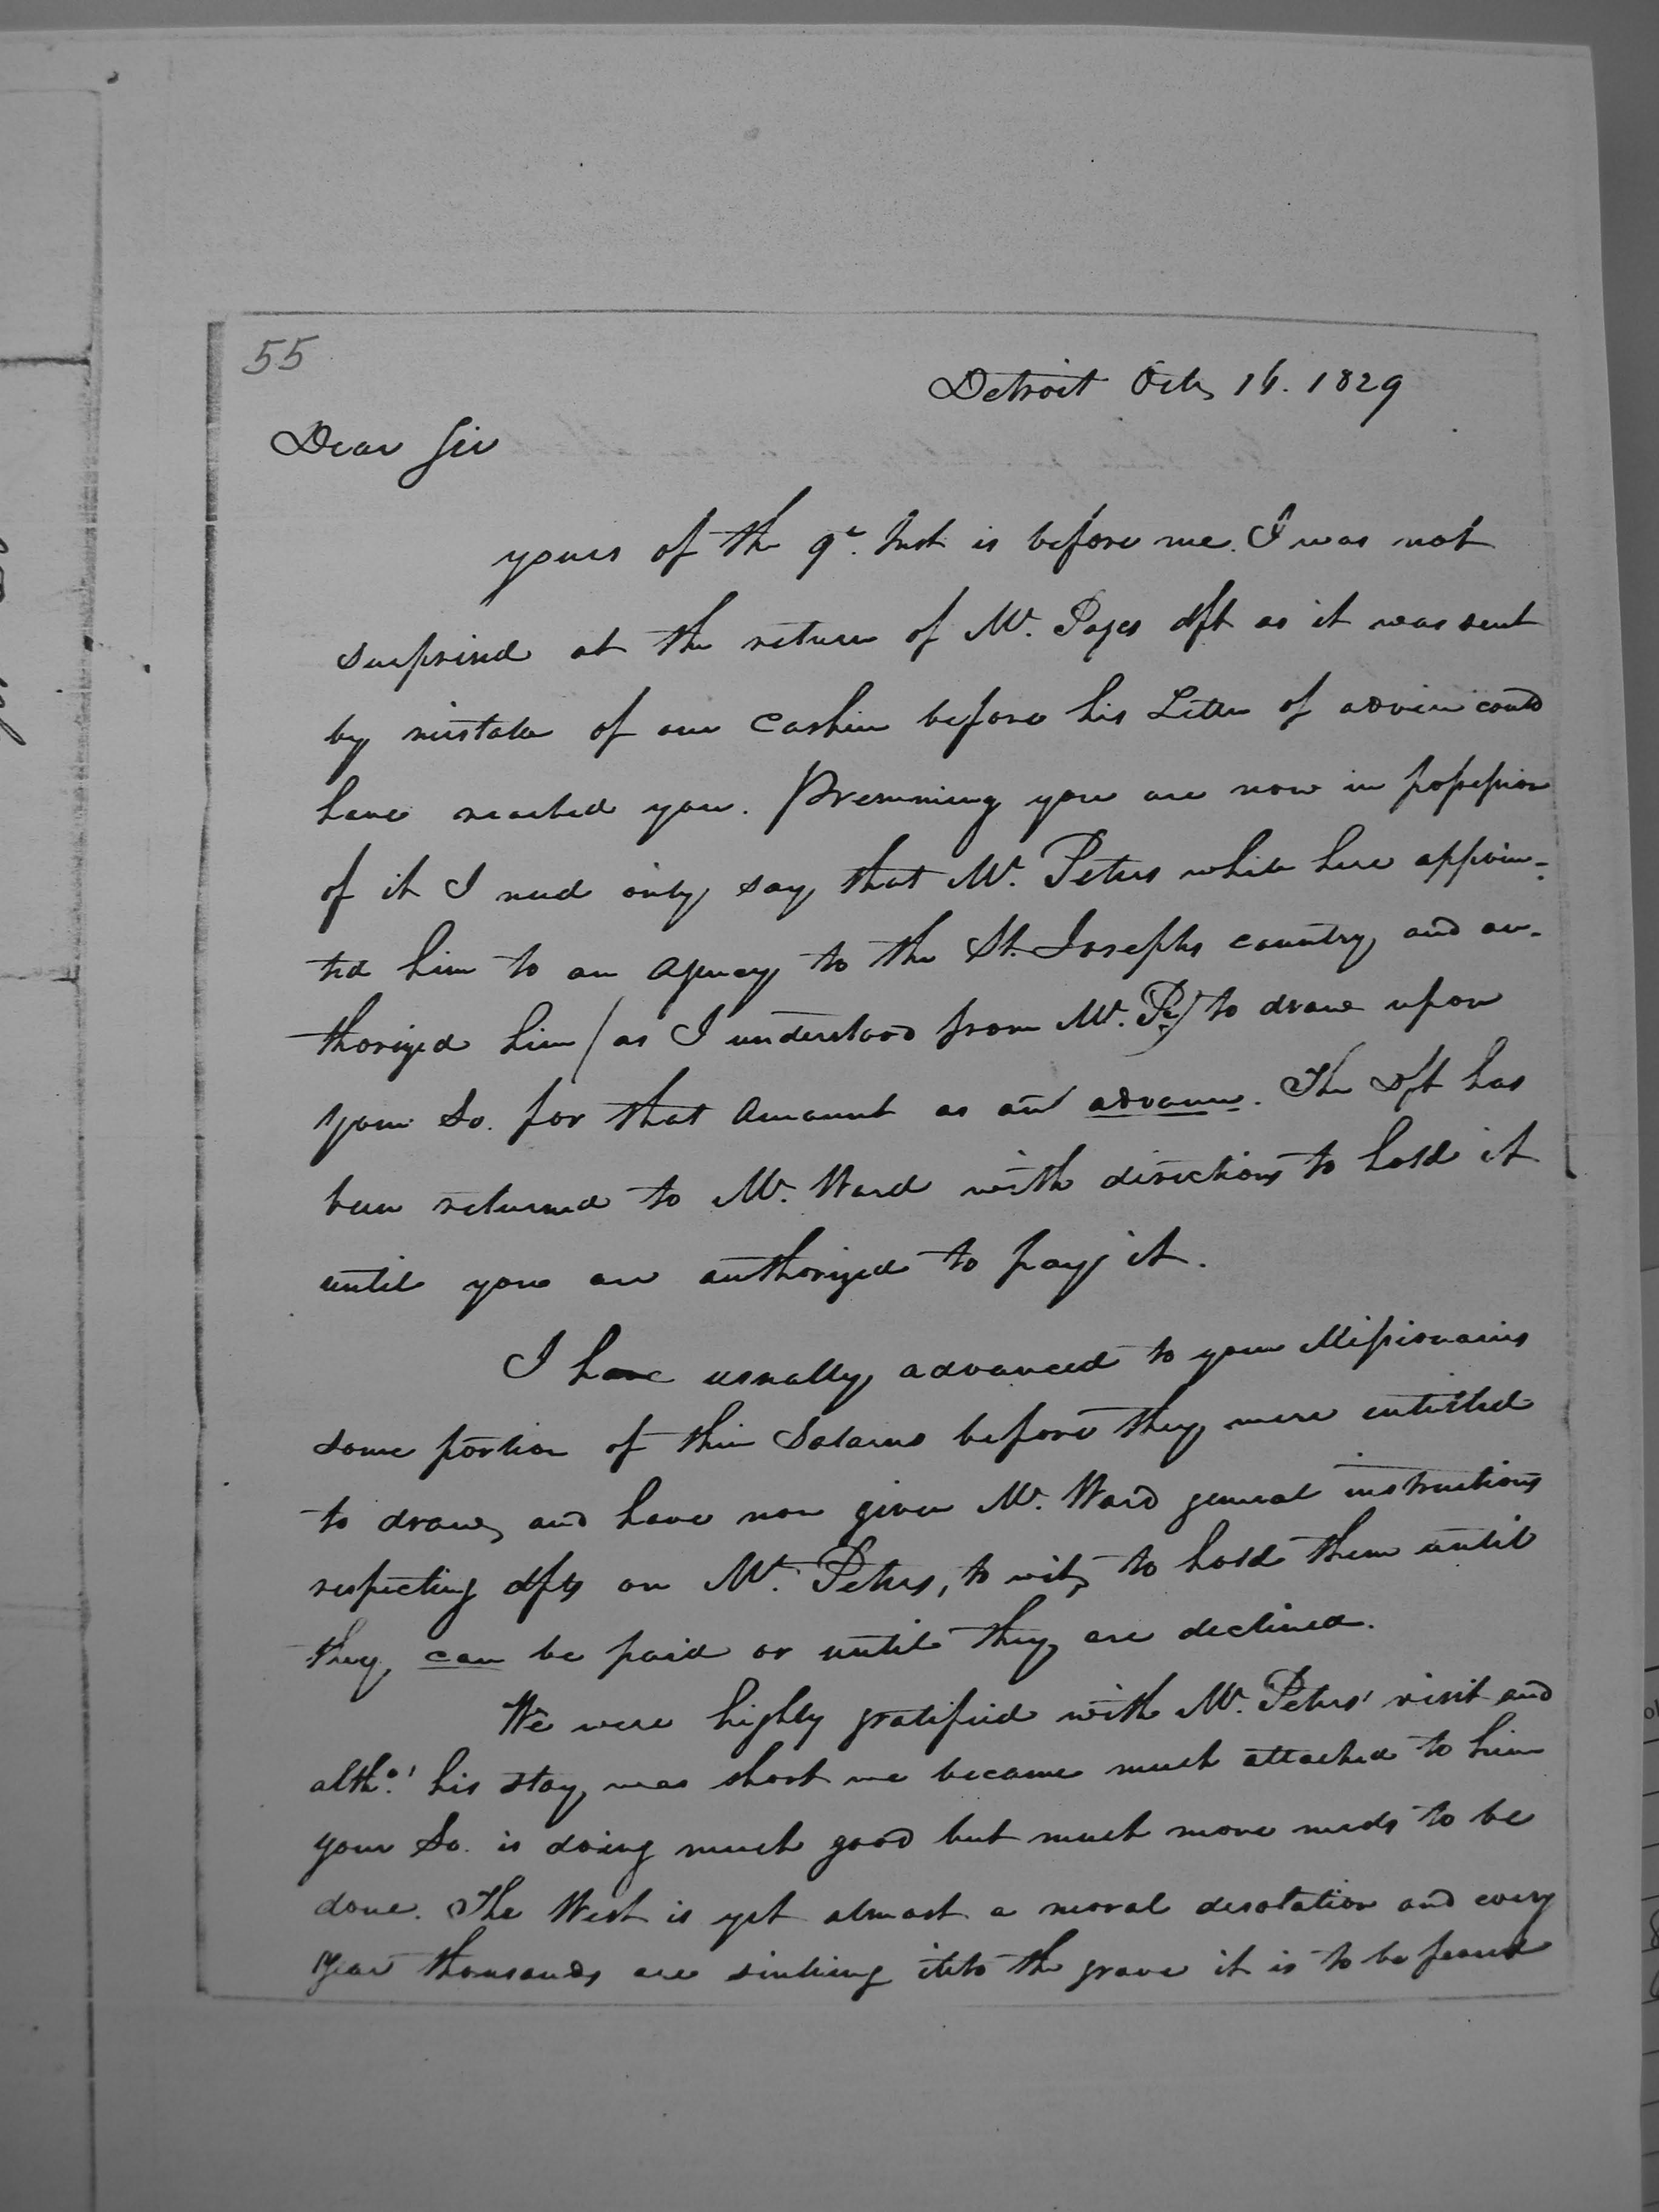 55
Detroit Octr 16. 1829
Dear Sir
yours of the 9th. Inst is before me. I was not
surprised at the return of Mr. Pages dft as it was sent
by mistake of our Cashier before his Letter of advice could
have reached you. Presuming you are now in possession
of it I need only say that Mr. Peters while here appoin-
ted him to an Agency to the St. Josephs country and au-
thorized him (as I understood from Mr. P.) to draw upon
your So. for that Amount as an advance. The Dft has
been returned to Mr. Ward with directions to hold it
until you are authorized to pay it.
I have usually advanced to your Missionaries
some portion of their Salaries before they were entitled
to draw, and have now given Mr. Ward general instructions
respecting dfts on Mr. Peters, to wit, to hold them until
they can be paid or until they are declined.
We were highly gratified with Mr. Peters' visit and
altho' his stay was short we became much attached to him
your So. is doing much good but much more needs to be
done. The West is yet almost a moral desolation and every
year thousands are sinking into the grave it is to be feared